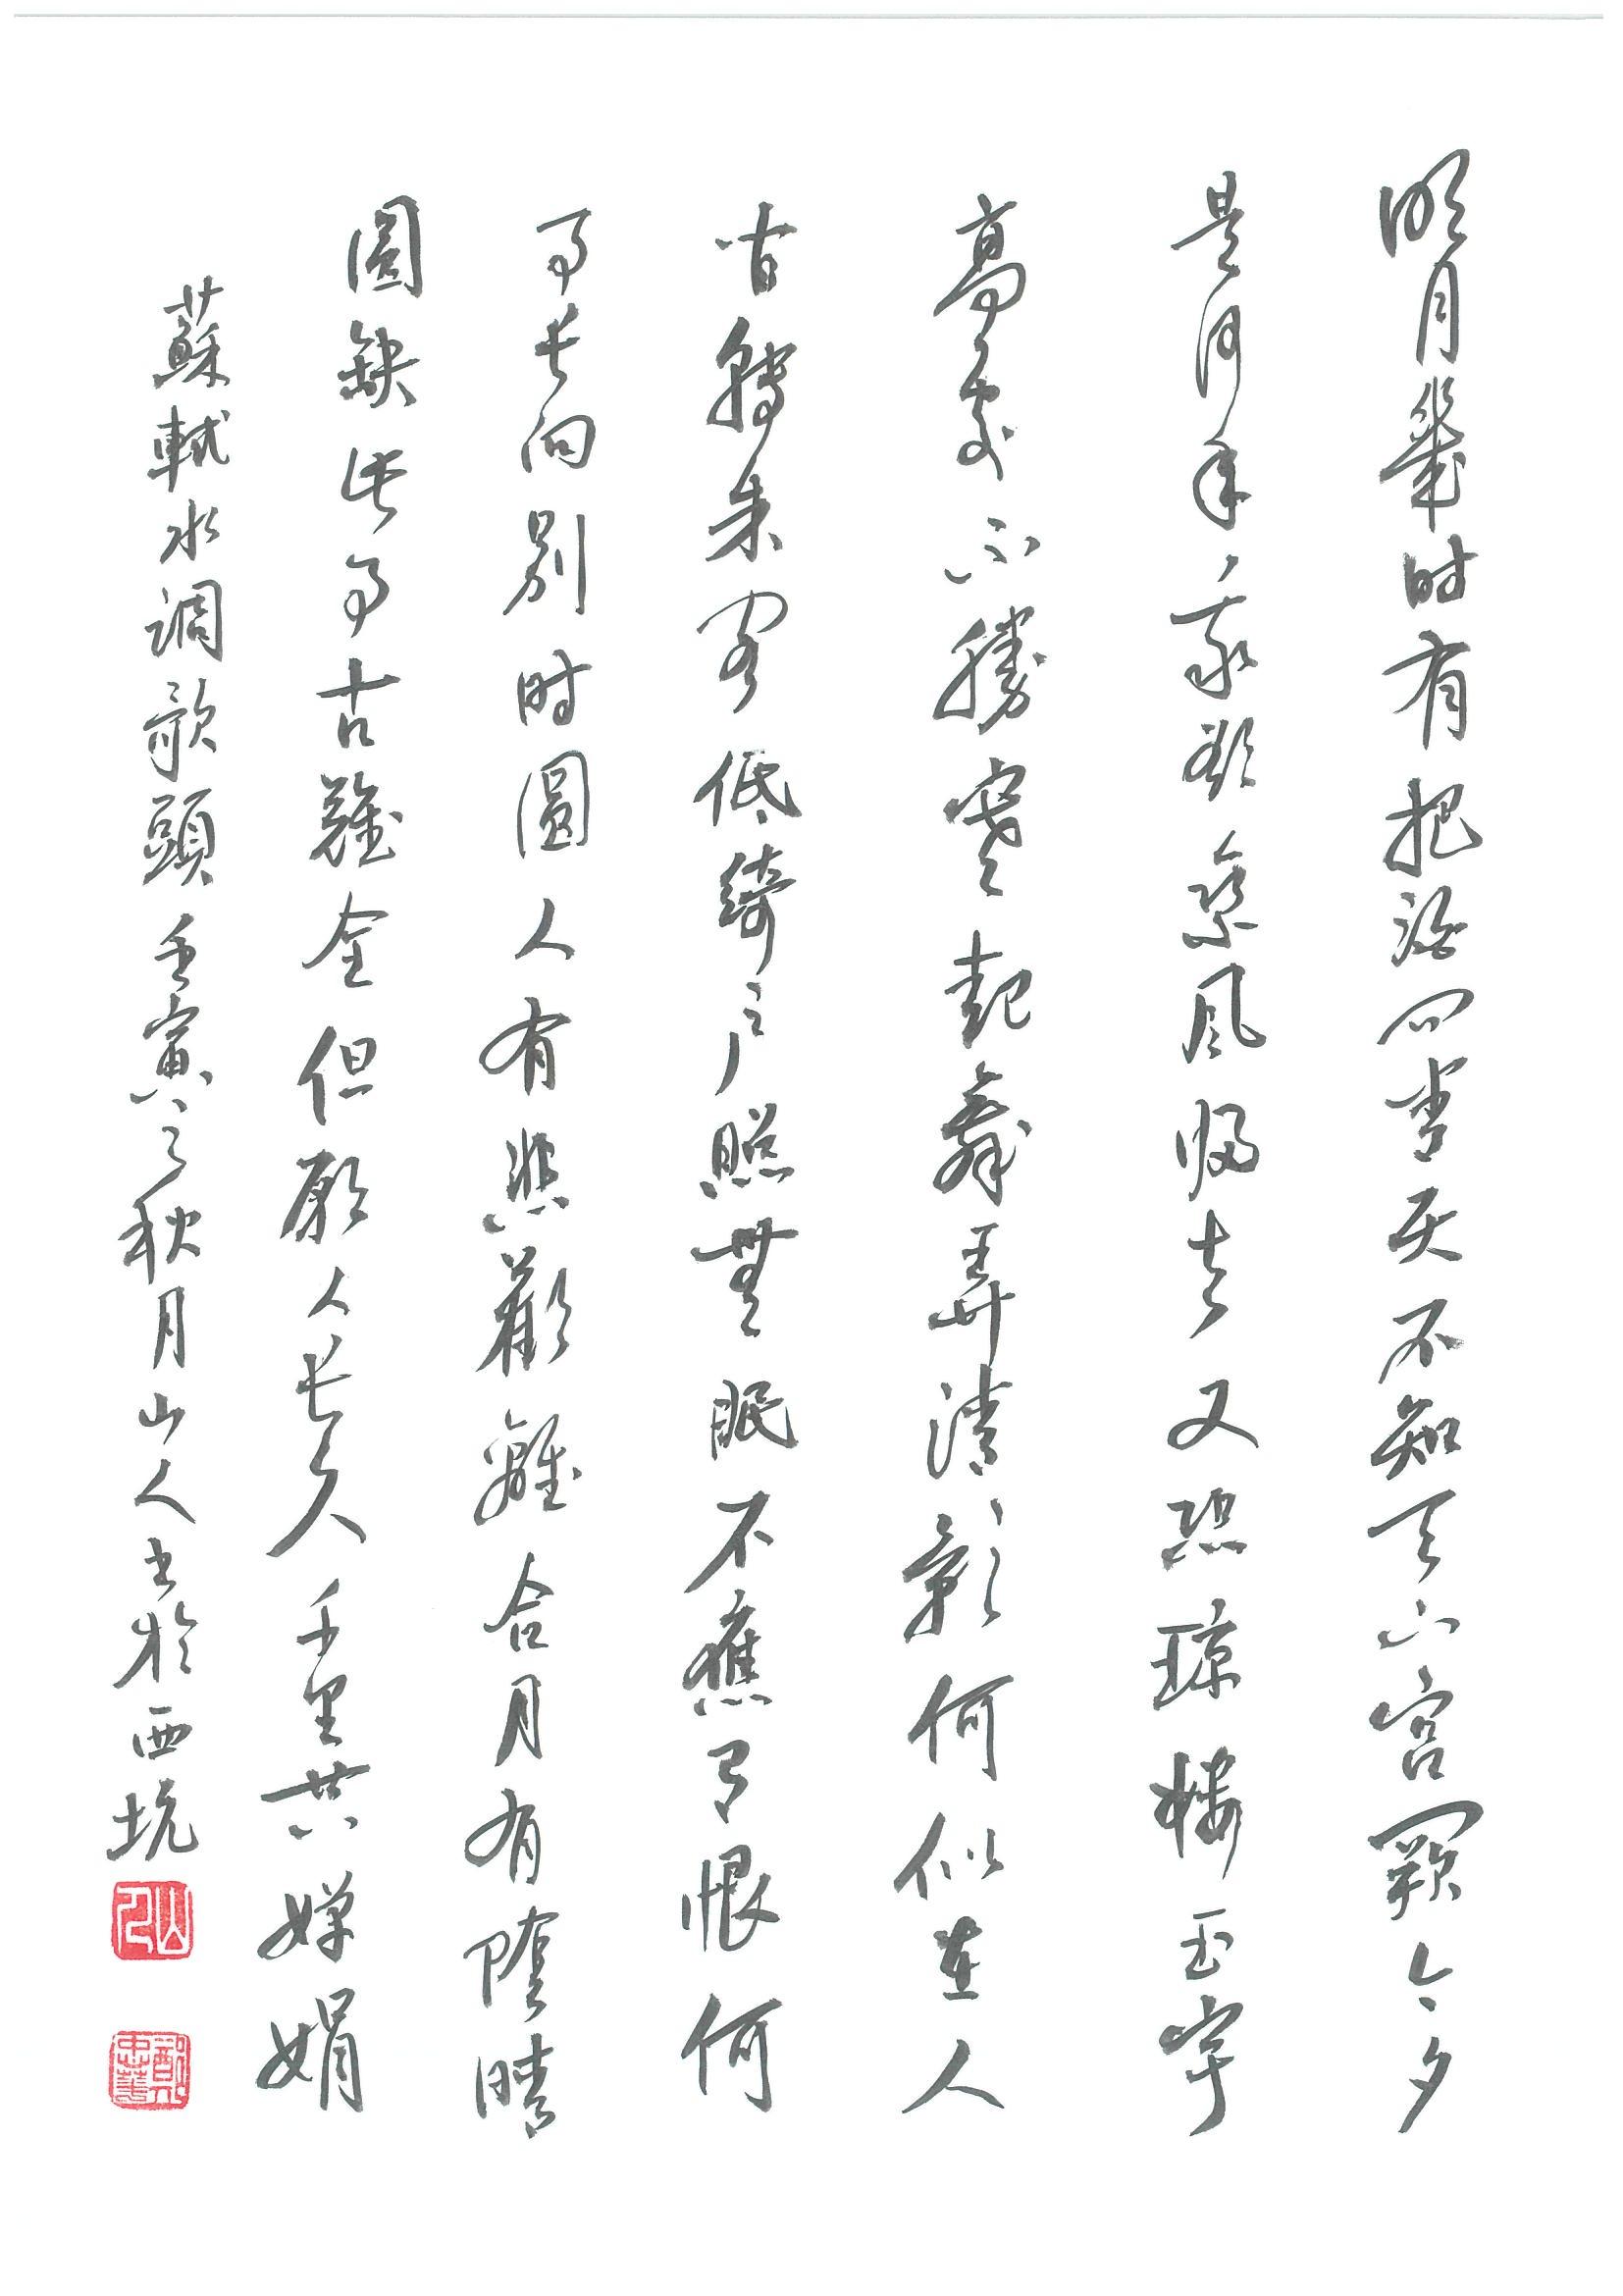 明月幾时有把酒问青天不知天上宮闕今夕
是何年我欲乘风归去又恐琼楼玉宇
高處不勝寒起舞弄清影何似在人
间轉朱閣低綺戶照無眠不應有恨何
事長向別时圓人有悲歡離合月有陰晴
圓缺此事古難全但願人長久千里共嬋娟
蘇軾水調歌頭壬寅之秋月山人书於西坑
山人
鄭忠華